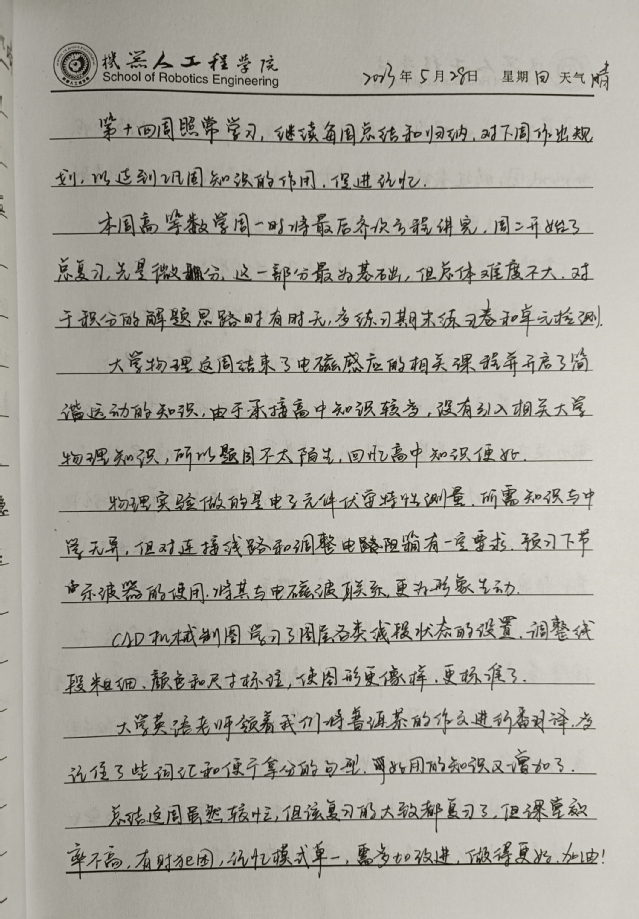 机器人工程学院
School of Robotics Engineering
2023年5月28日 星期日 天气晴
第十四周照常学习，继续每周总结和归纳，对下周作出规
划，以达到巩固知识的作用，促进记忆.
本周高等数学周一时将最后齐次方程讲完，周二开始了
总复习，先是微积分，这一部分最为基础，但总体难度不大，对
于积分的解题思路时有时无，多练习期末练习卷和单元检测.
大学物理这周结束了电磁感应的相关课程并开启了简
谐运动的知识，由于承接高中知识较多，没有引入相关大学
物理知识，所以题目不太陌生，回忆高中知识便好.
物理实验做的是电子元件伏安特性测量，所需知识与中
学无异，但对连接线路和调整电阻箱有一定要求，预习下节
示波器的使用，将其与电磁波联系，更为形象生动.
CAD机械制图学习了图层各类线段状态的设置，调整线
段粗细、颜色和尺寸标注，使图形更像样，更标准了.
大学英语老师领着我们将普洱茶的作文进行翻译，多
记住了些词汇和便于拿分的句型，开始用的知识又增加了.
总结这周虽然较忙，但该复习的大致都复习了，但课堂效
率不高，有时犯困，记忆模式单一，需多加改进，做得更好，加油！